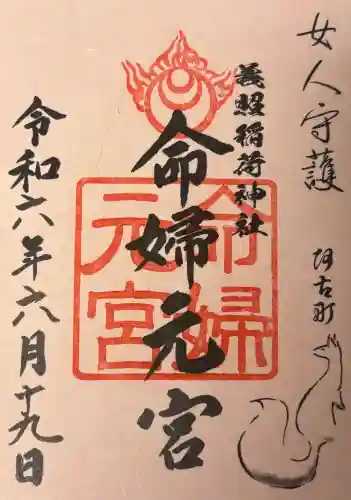 女人守護
阿古町
義照稲荷神社
命婦元宮
命婦元宮
令和六年六月十九日